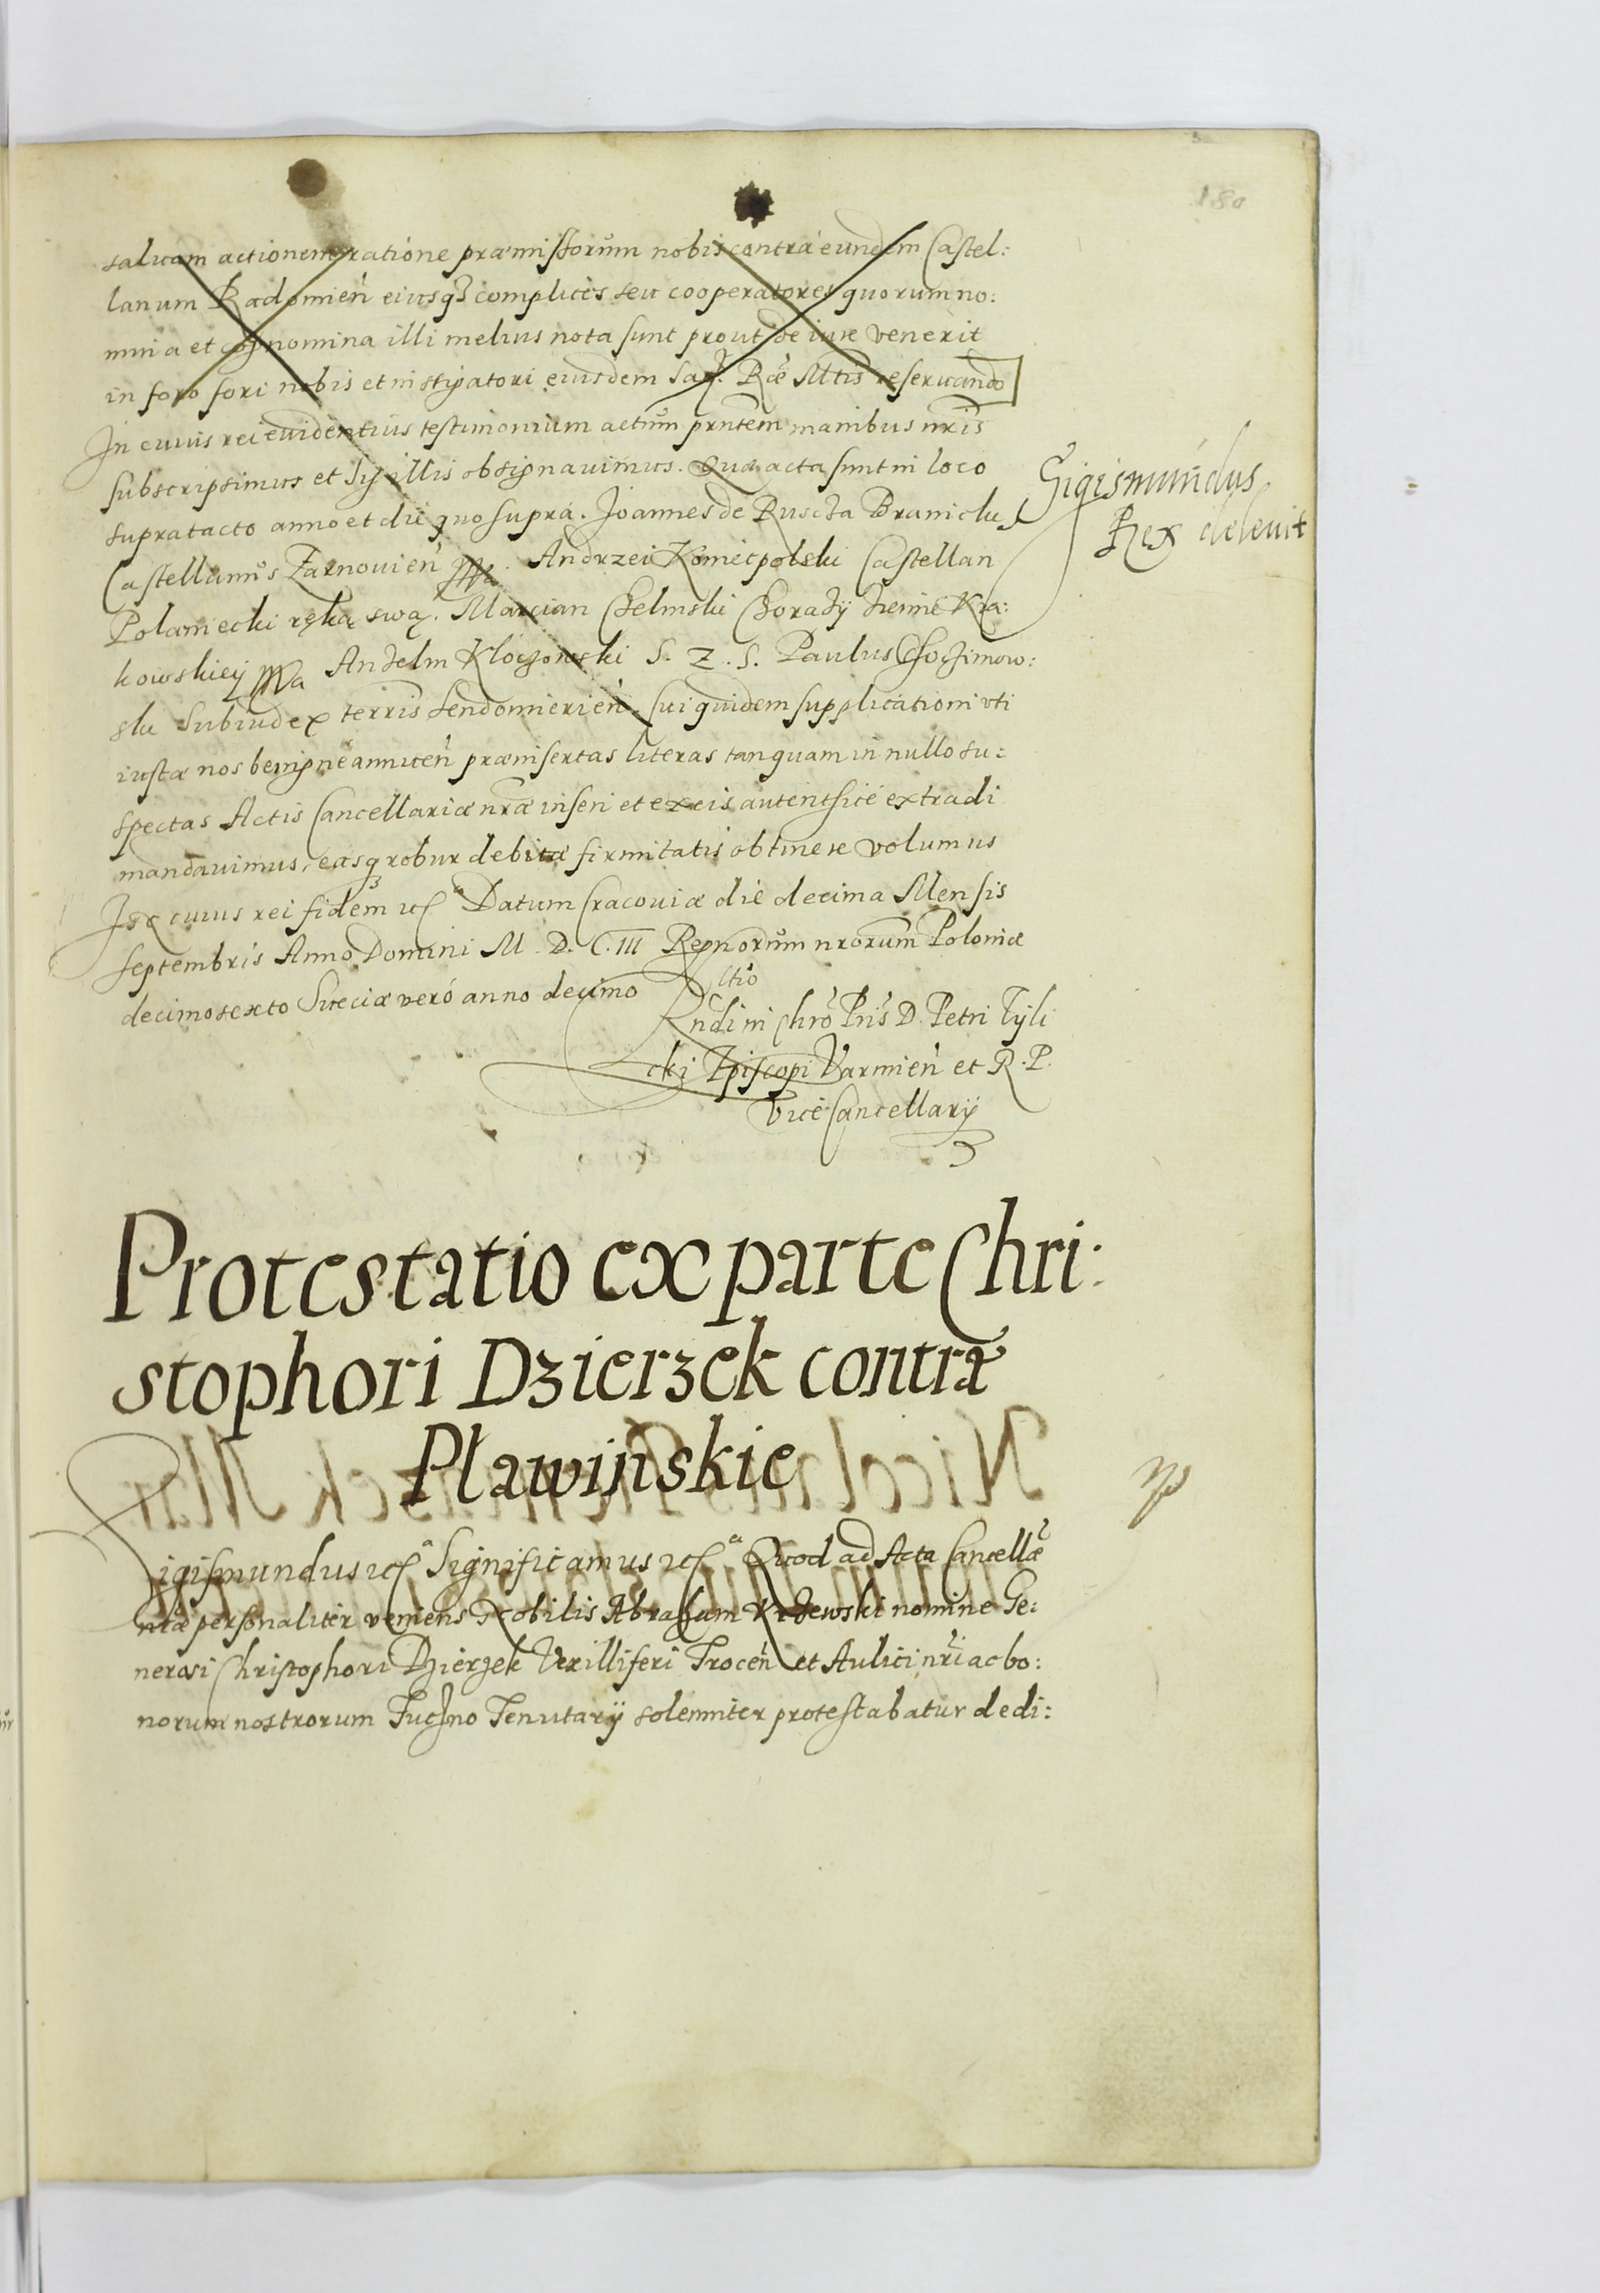 180
saluam actionem ratione præmissorum nobis contra eundem Castel:
lanum Radomień eiusq3 complices seu cooperatores quorum no:
mina et cognomina illi melius nota sunt prout de iure venerit
in foro fori nobis et instigatori eiusdem Sac. Ræ Mtis reseruando
In cuius rei euidentius testimonium actum prntem manibus nris
subscripsimus et Sigillis obsignauimus. Quæ acta sunt in loco
supratacto anno et die quo supra. Joannes de Ruscza Branicky
Castellanus Zarnouień mpa. Andrzei Koniecpolski Castellan
Polaniecki ręką swą. Marcian Chelmski Chorąży ziemie Kra:
kowskiey mpa Anzelm Kłoczowski S. Z. S. Paulus Chocimow:
sky Subiudex terris Sendomierień. Cui quidem supplicationi vti
iustæ nos benigne annueń præinsertas literas tanquam in nullo su:
spectas Actis Cancellariæ nræ inseri et ex eis autenthice extradi
mandauimus, easq3 robur debitæ firmitatis obtinere volumus
In cuius rei fidem etc Datum Cracouiæ die decima Mensis
Septembris Anno Domini M. D. C. III Regnorum nrorum Poloniæ
decimosexto Sueciæ vero anno decimo
Sigismundus
Rex deleuit
Rndi in Chro Pris D. Petri Tyli
cki Episcopi Varmień et R. P.
Vice Cancellarij
Protestatio ex parte Chri:
stophori Dzierzek contra
Pławinskie
Sigismundus etc Significamus etc Quod ad Acta Cancellæ
nræ personaliter veniens Nobilis Abraham nomine Ge:
nerosi Christophori Dzierzek Vexilliferi Trocen et Aulici nri ac bo:
norum nostrorum Tuczno Tenutarij solemniter protestabatur dedi: